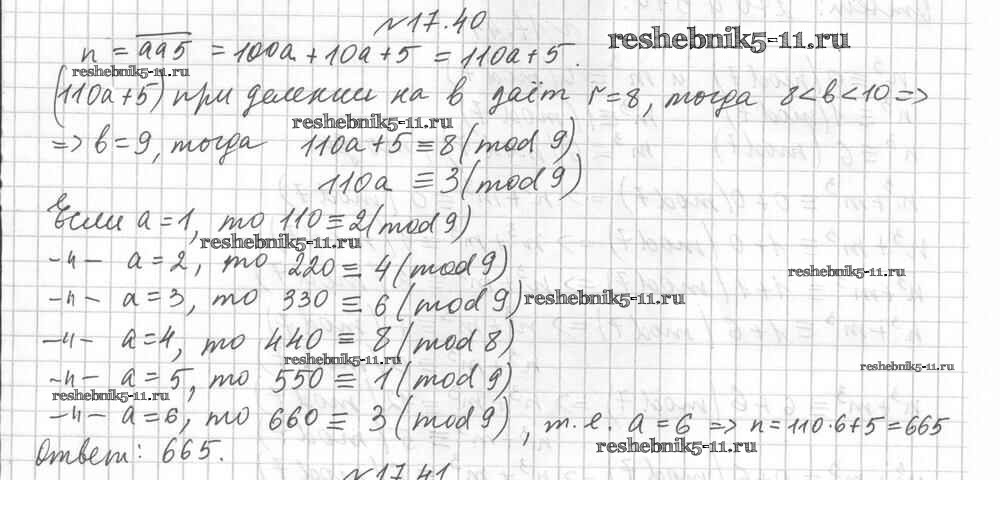 №17.40
n = aa5 = 100a + 10a + 5 = 110a + 5.
reshebnik5-11.ru
reshebnik5-11.ru
(110a + 5) при делении на b даёт r = 8, тогда 8 < b < 10 =>
reshebnik5-11.ru
=> b = 9, тогда 110a + 5 ≡ 8 (mod 9)
110a ≡ 3 (mod 9)
Если a = 1, то 110 ≡ 2 (mod 9)
reshebnik5-11.ru
-"- a = 2, то 220 ≡ 4 (mod 9)
reshebnik5-11.ru
-"- a = 3, то 330 ≡ 6 (mod 9)
reshebnik5-11.ru
-"- a = 4, то 440 ≡ 8 (mod 8)
reshebnik5-11.ru
reshebnik5-11.ru
-"- a = 5, то 550 ≡ 1 (mod 9)
reshebnik5-11.ru
-"- a = 6, то 660 ≡ 3 (mod 9), т.е. a = 6 => n = 110·6 + 5 = 665
reshebnik5-11.ru
Ответ: 665.
№17.41